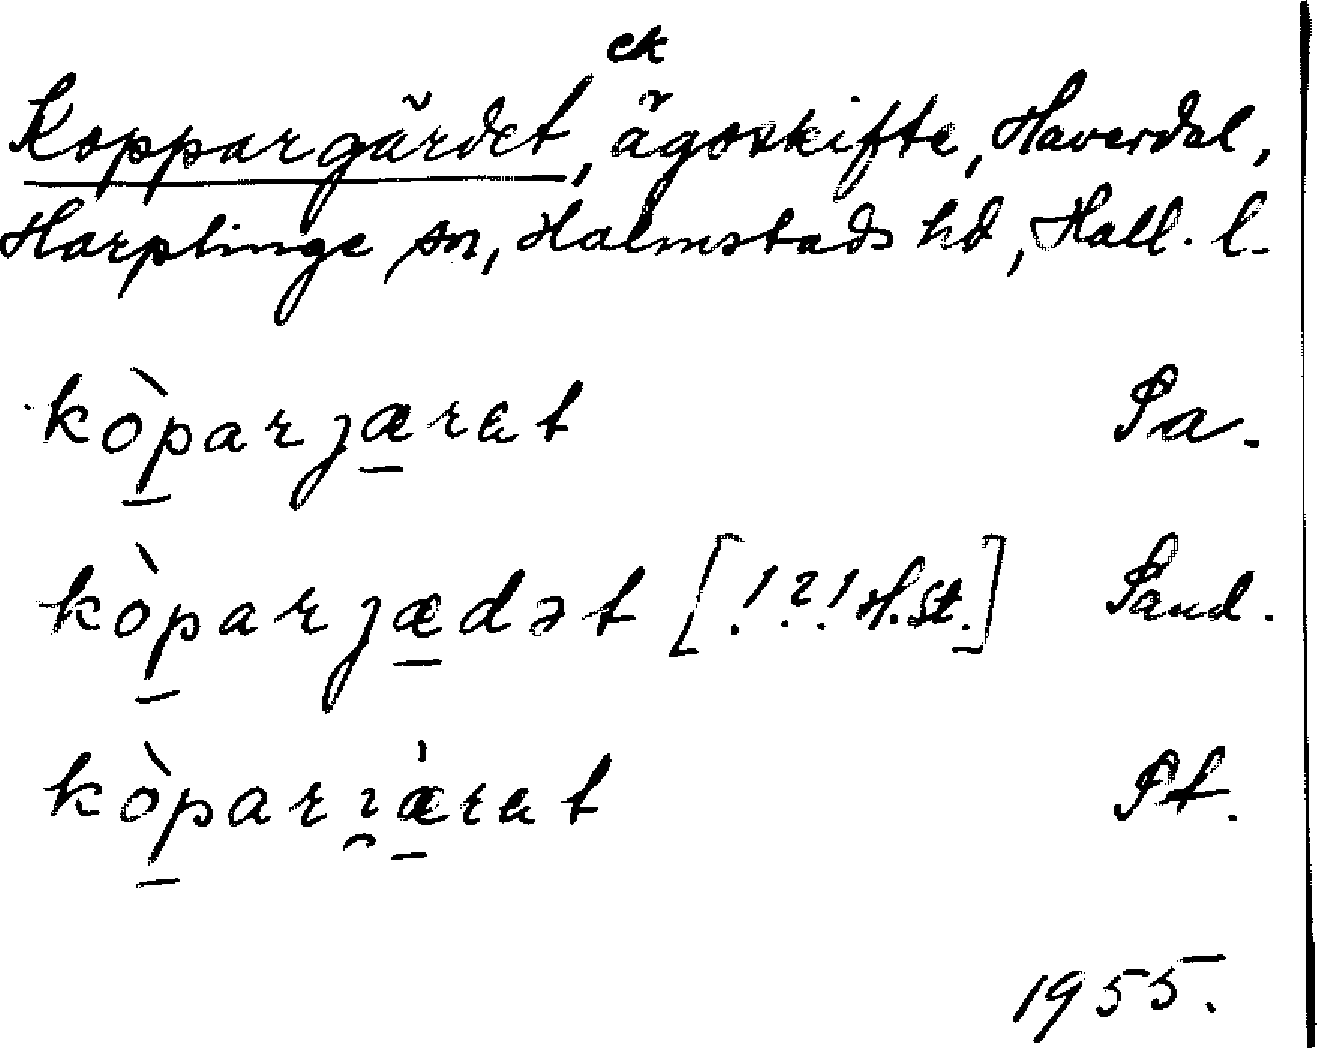 ek
Koppargärdet, ägoskifte, Haverdal,
Harplinge sn, Halmstads hd, Hall. l.
kò̱parjæ̱rat Pa.
kò̱parjæ̱dət [!?! H.St.] Paud.
kò̱parɪ̯æ̱̀rat Pt.
1955.